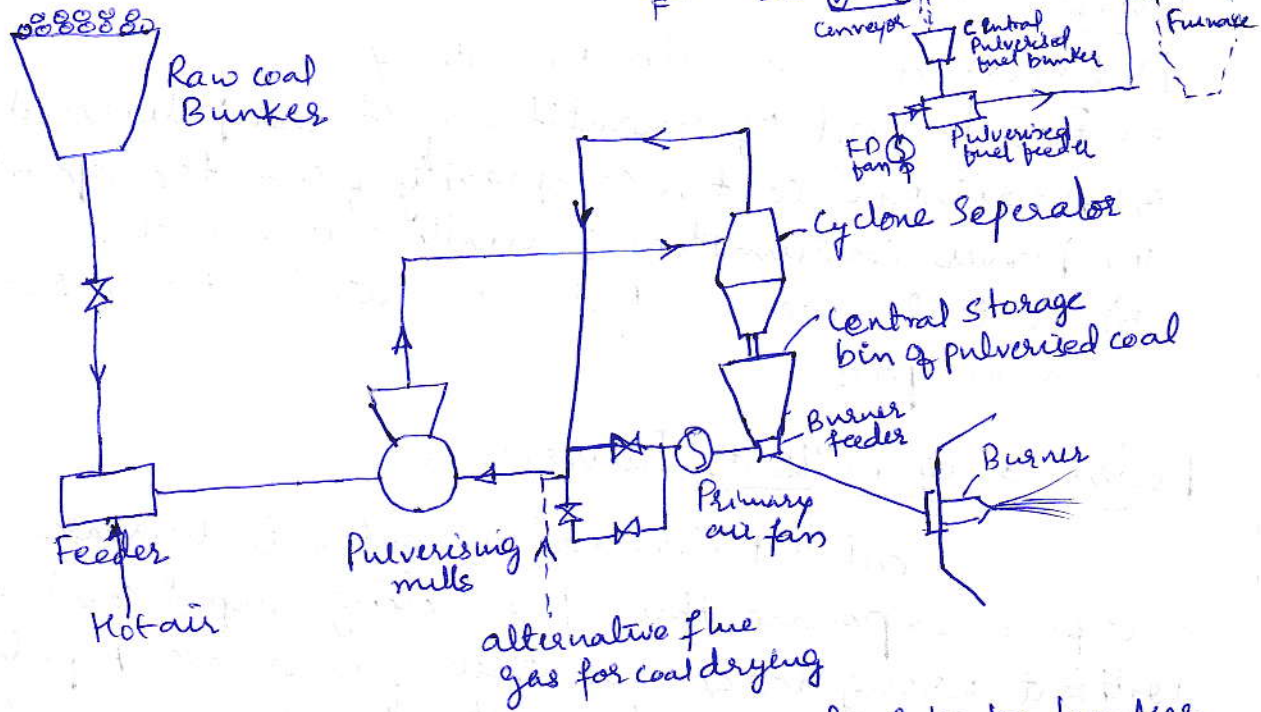 F
Conveyor
Central
Pulverised
fuel bunker
Furnace
FD
fan
Pulverised
fuel feeder
Raw coal
Bunker
Cyclone Seperator
Central Storage
bin of pulverised coal
Burner
feeder
Burner
Primary
air fan
Pulverising
mills
Feeder
Hot air
alternative flue
gas for coal drying